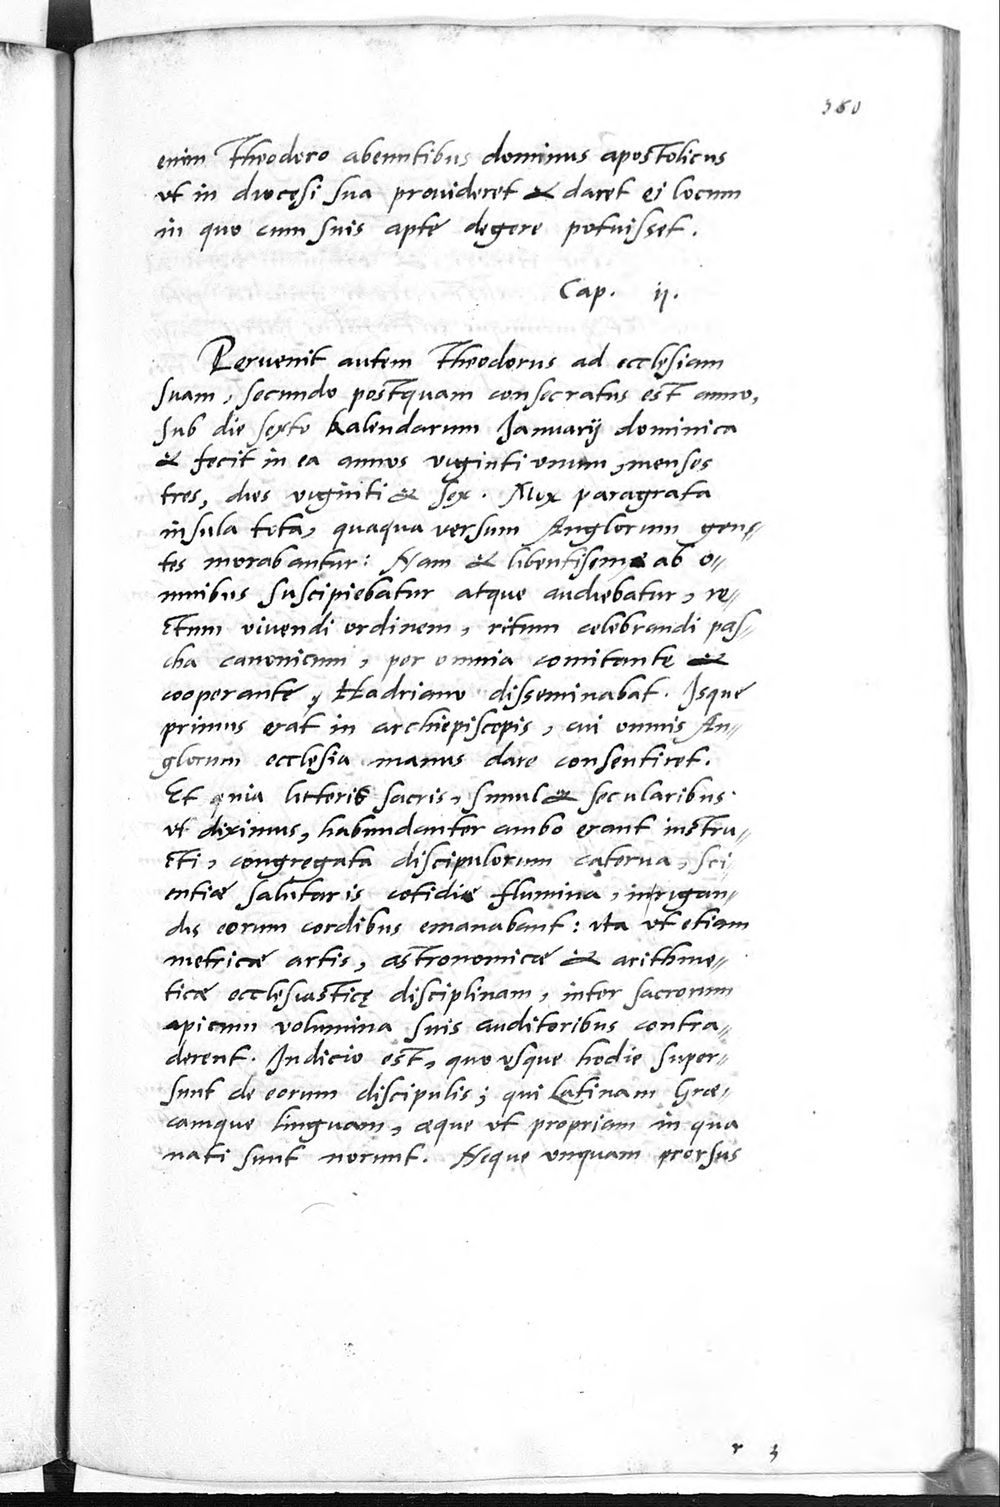 360
enim Theodoro abeuntibus dominus apostolicus
vt in diocęsi sua prouideret & daret ei locum
in quo cum suis apte degere potuisset.
Cap. ij.
Peruenit autem Theodorus ad ecclęsiam
suam, secundo postquam consecratus est anno,
sub die sexto kalendarum Ianuarij dominica
& fecit in ea annos viginti vnum, menses
tres, dies viginti & sex. Mox paragrata
insula tota, quaqua versum Anglorum gen〃
tes morabantur: Nam & libentisseme ab o〃
mnibus suscipiebatur atque audiebatur, re〃
ctum viuendi ordinem, ritum celebrandi pas〃
cha canonicum, per omnia comitante &
cooperante, Hadriano disseminabat. Isque
primus erat in archiepiscopis, cui omnis An〃
glorum ecclęsia manus dare consentiret.
Et quia litteris sacris, simul & secularibus
vt diximus, habundanter ambo erant instru〃
cti, congregata discipulorum caterua, sci
entiæ salutaris cotidie flumina, inrigan〃
dis eorum cordibus emanabant: ita vt etiam
metricæ artis, astronomicæ & arithme〃
ticæ ecclesiasticę disciplinam, inter sacrorum
apicum volumina suis auditoribus contra〃
derent. Indicio est, quo vsque hodie super〃
sunt de eorum discipulis; qui Latinam Græ〃
camque linguam, æque vt propriam in qua
nati sunt norunt. Neque vnquam prorsus
r 3